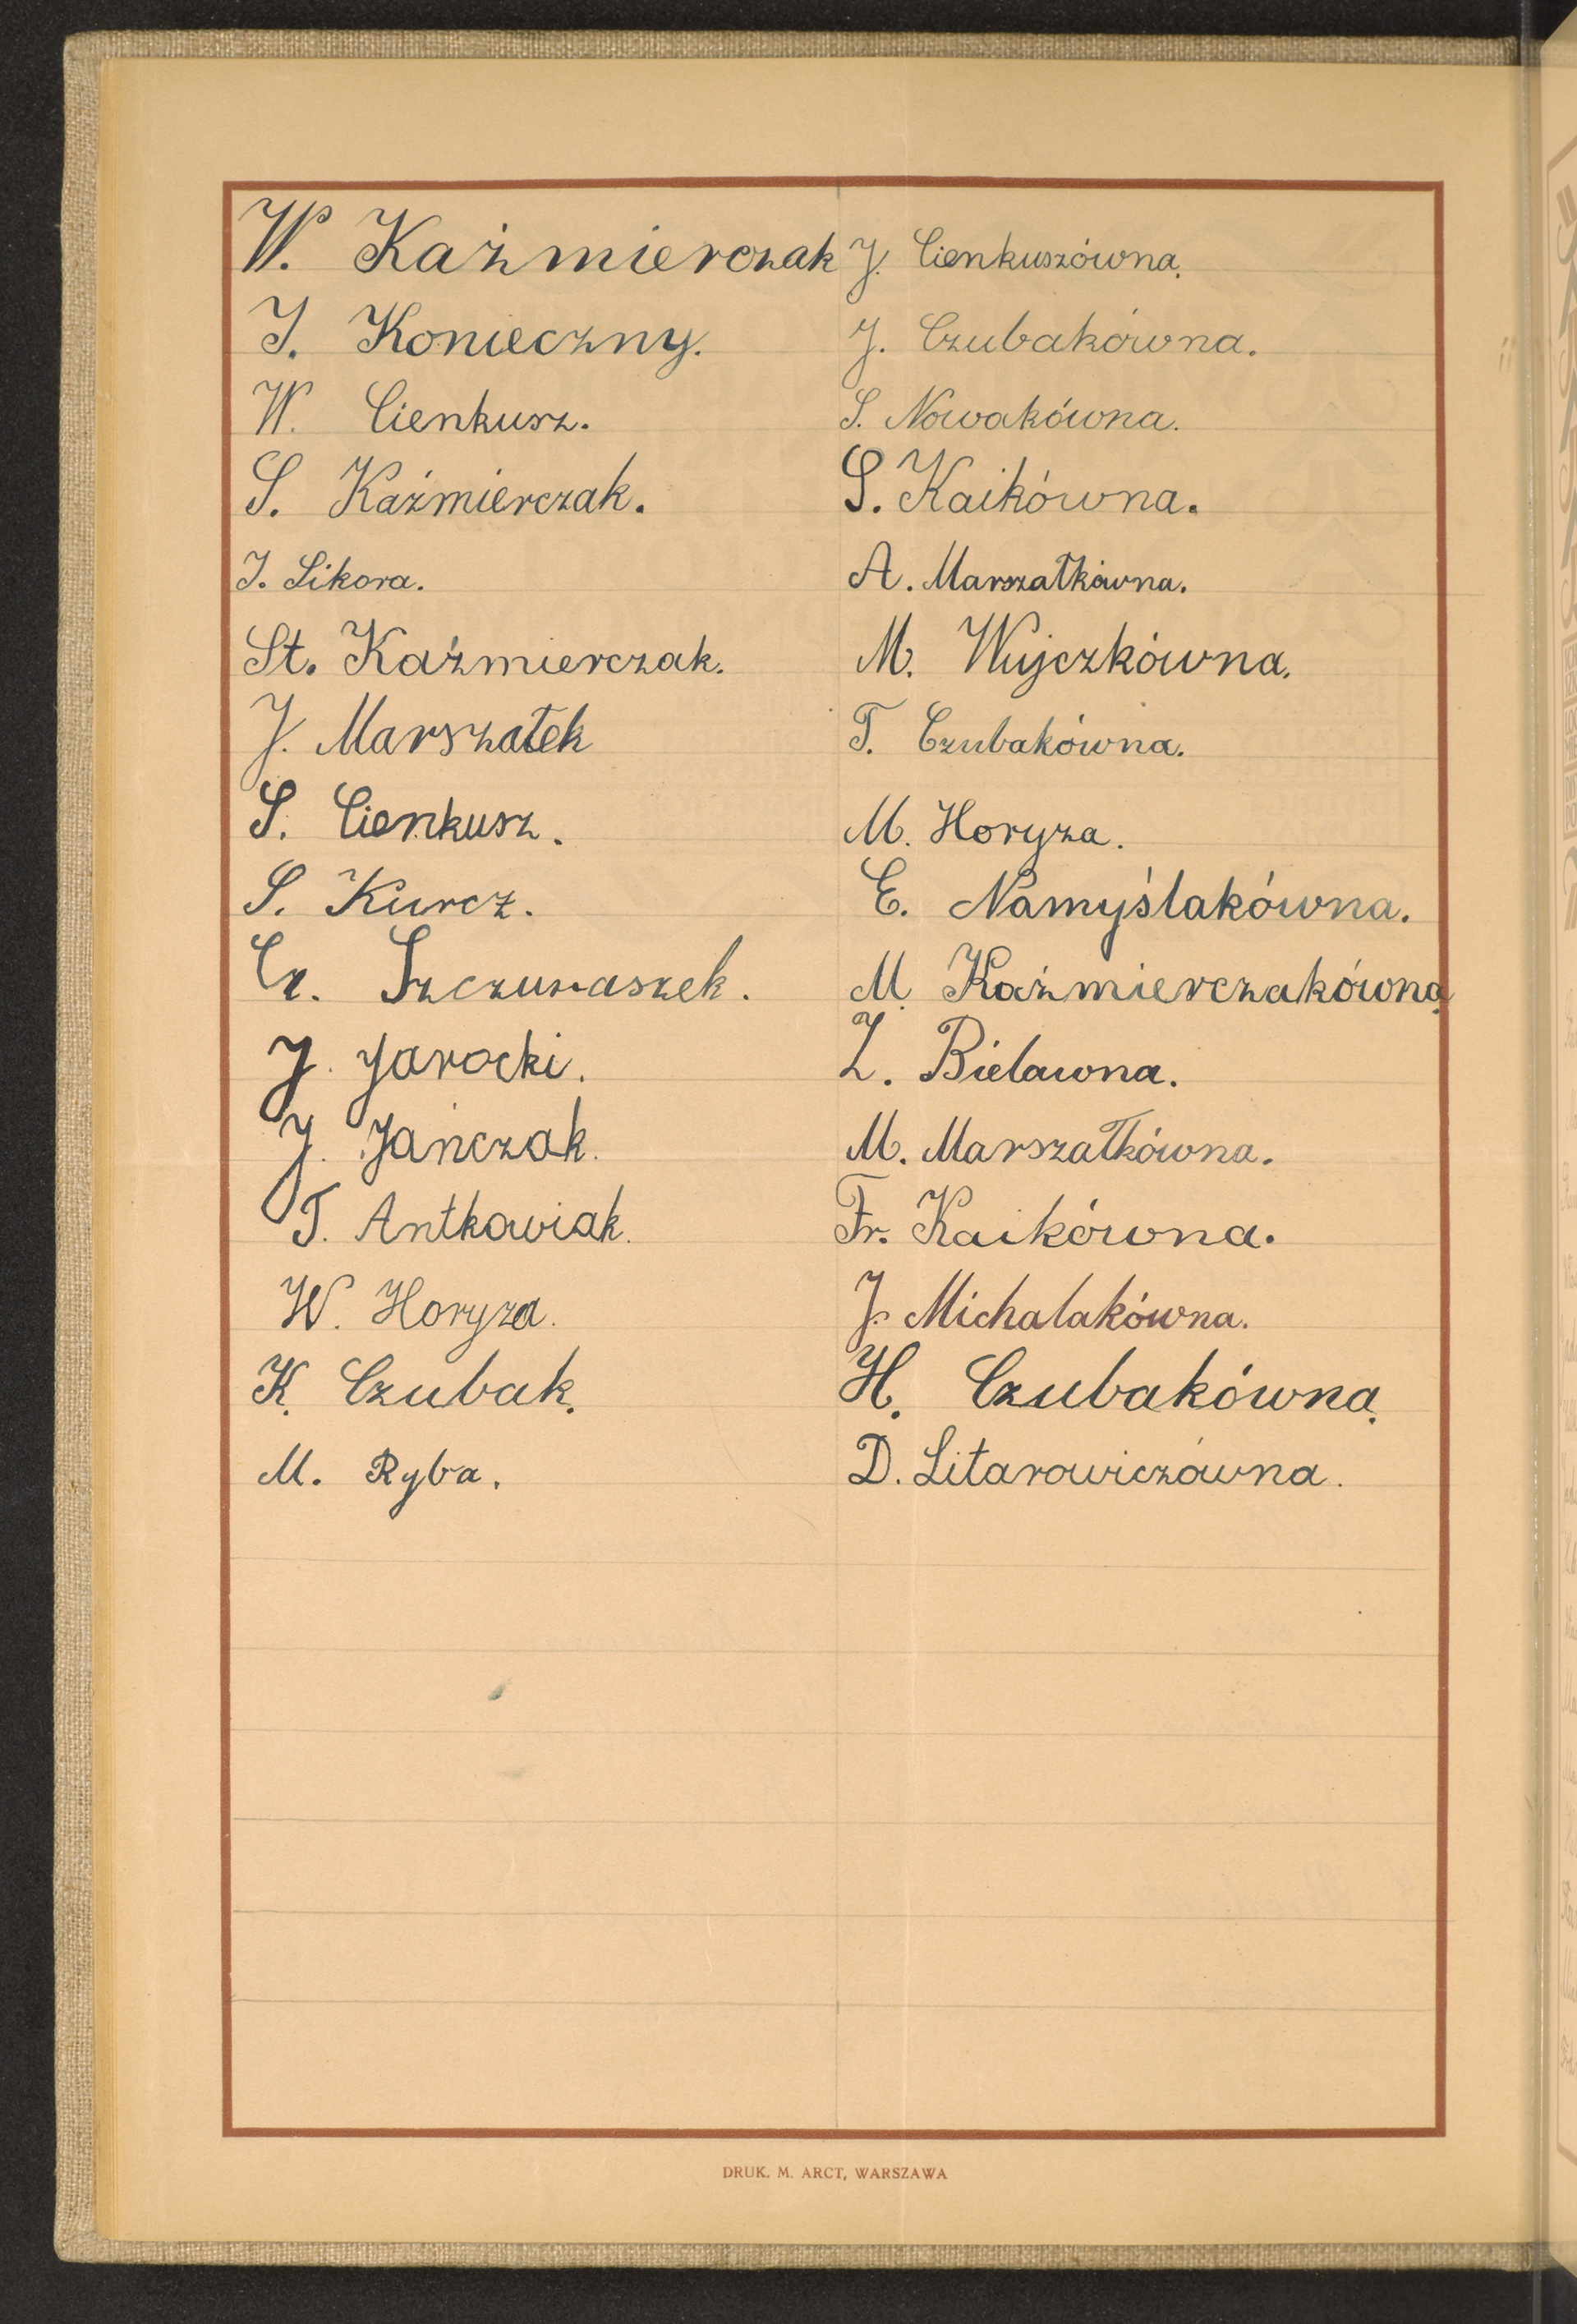 W. Kaźmierczak
I. Konieczny.
W. Cienkusz.
S. Kaźmierczak.
I. Sikora.
St. Kaźmierczak.
J. Marszałek
S. Cienkusz.
S. Kurcz.
Cz. Szczuraszek.
J. Jarocki.
J. Jańczak.
T. Antkowiak.
W. Horyza.
K. Czubak.
M. Ryba.
J. Cienkuszówna.
J. Czubakówna.
S. Nowakówna.
S. Kaikówna.
A. Marszałkówna.
M. Wujczkówna.
T. Czubakówna.
M. Horyza.
E. Namyślakówna.
M. Kaźmierczakówna.
L. Bielawna.
M. Marszałkówna.
Fr. Kaikówna.
J. Michalakówna.
H. Czubakówna.
D. Litarowiczówna.
DRUK. M. ARCT, WARSZAWA